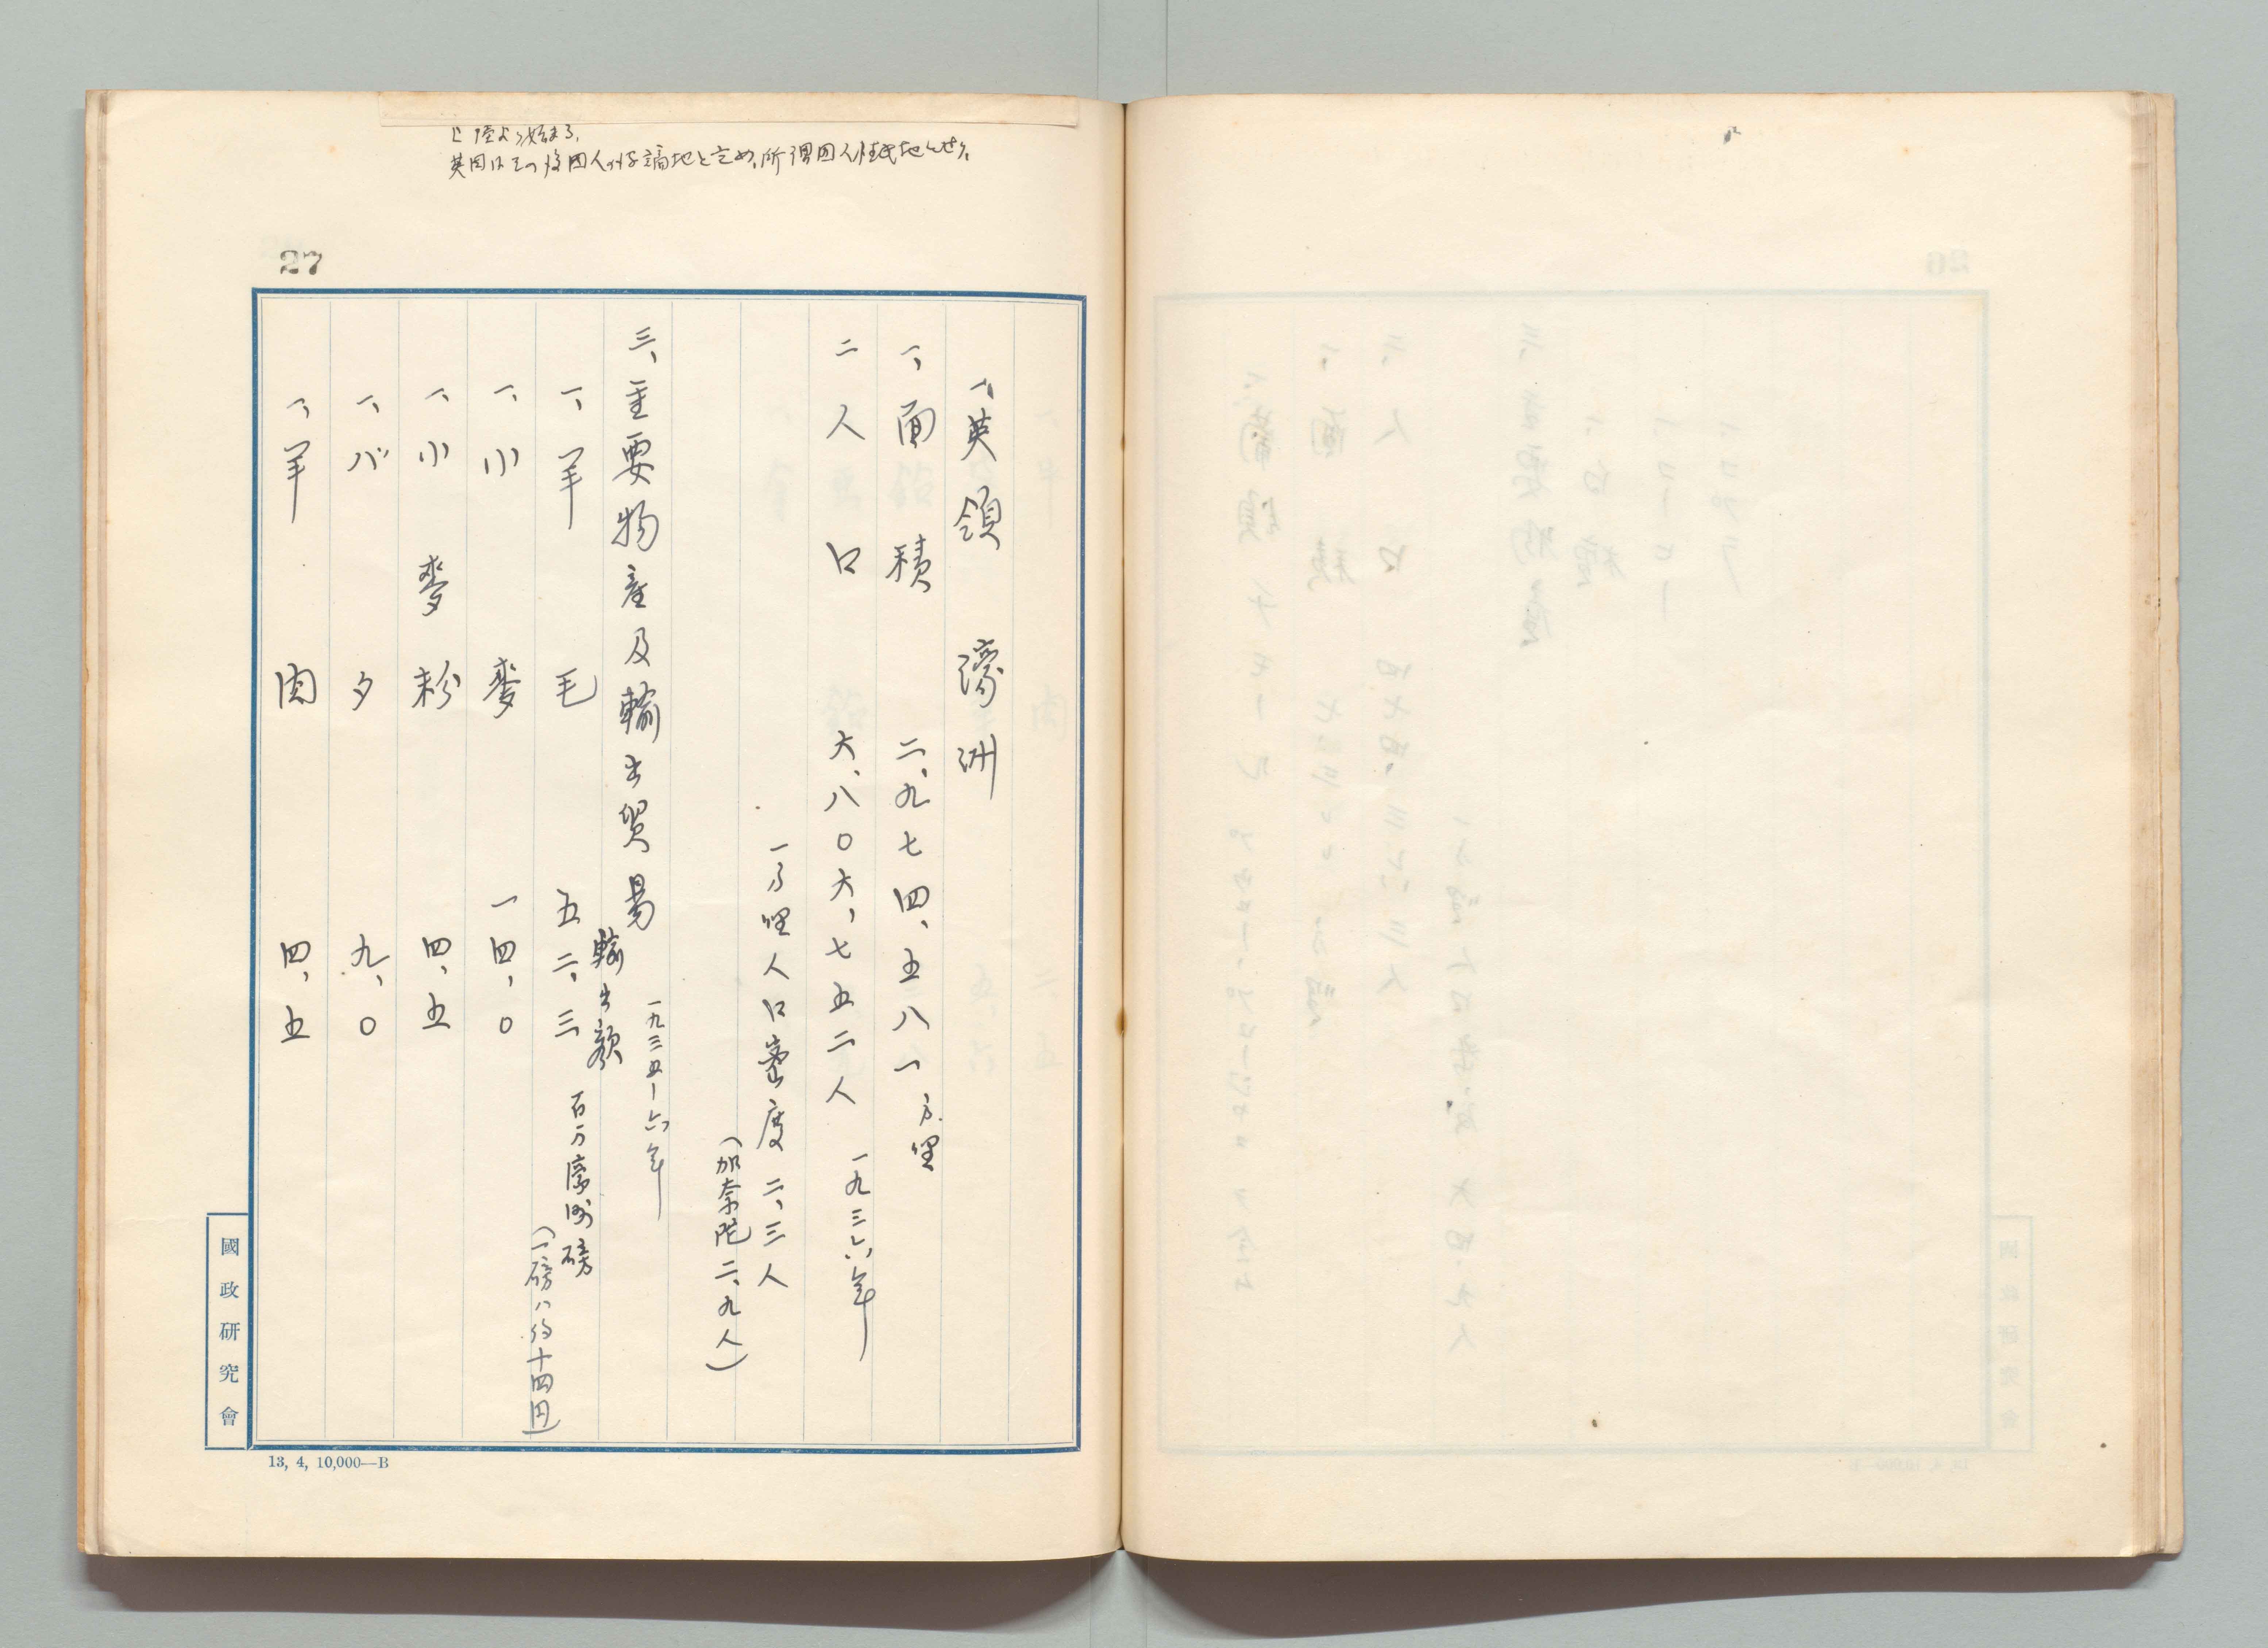 上陸より始まる、
英国はその後囚人の流謫地と定め、所謂囚人植民地とせり、
27
一、英領濠洲
一、面積 二、九七四、五八一方哩
二 人口 六、八〇六、七五二人 一九三六年
一方哩人口密度二、三人
(加奈陀二、九人)
三、主要物産及輸出貿易 一九三五―六年
輸出額
一、羊毛 五二、三 百万濠洲磅
(一磅ハ約十四円)
一、小麥 一四、〇
一、小麥粉 四、五
一、バタ 九、〇
一、羊肉 四、五
國政研究會
13, 4, 10,000—B